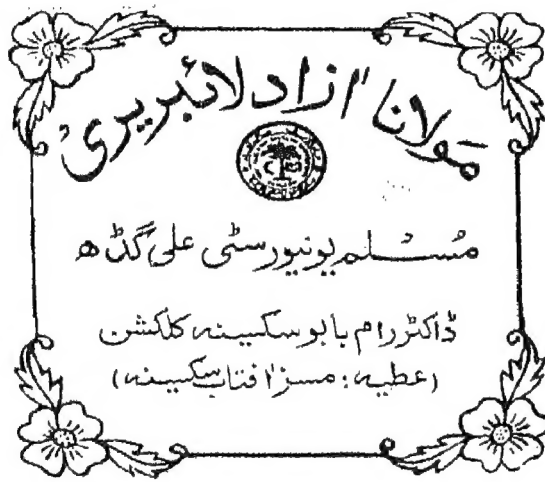 مولانا آزاد لائبریری
مُسلم یونیورسٹی علی گڈھ
ڈاکٹر رام بابو سکسینہ کلکشن
(عطیہ: مسز آفتاب سکسینہ)